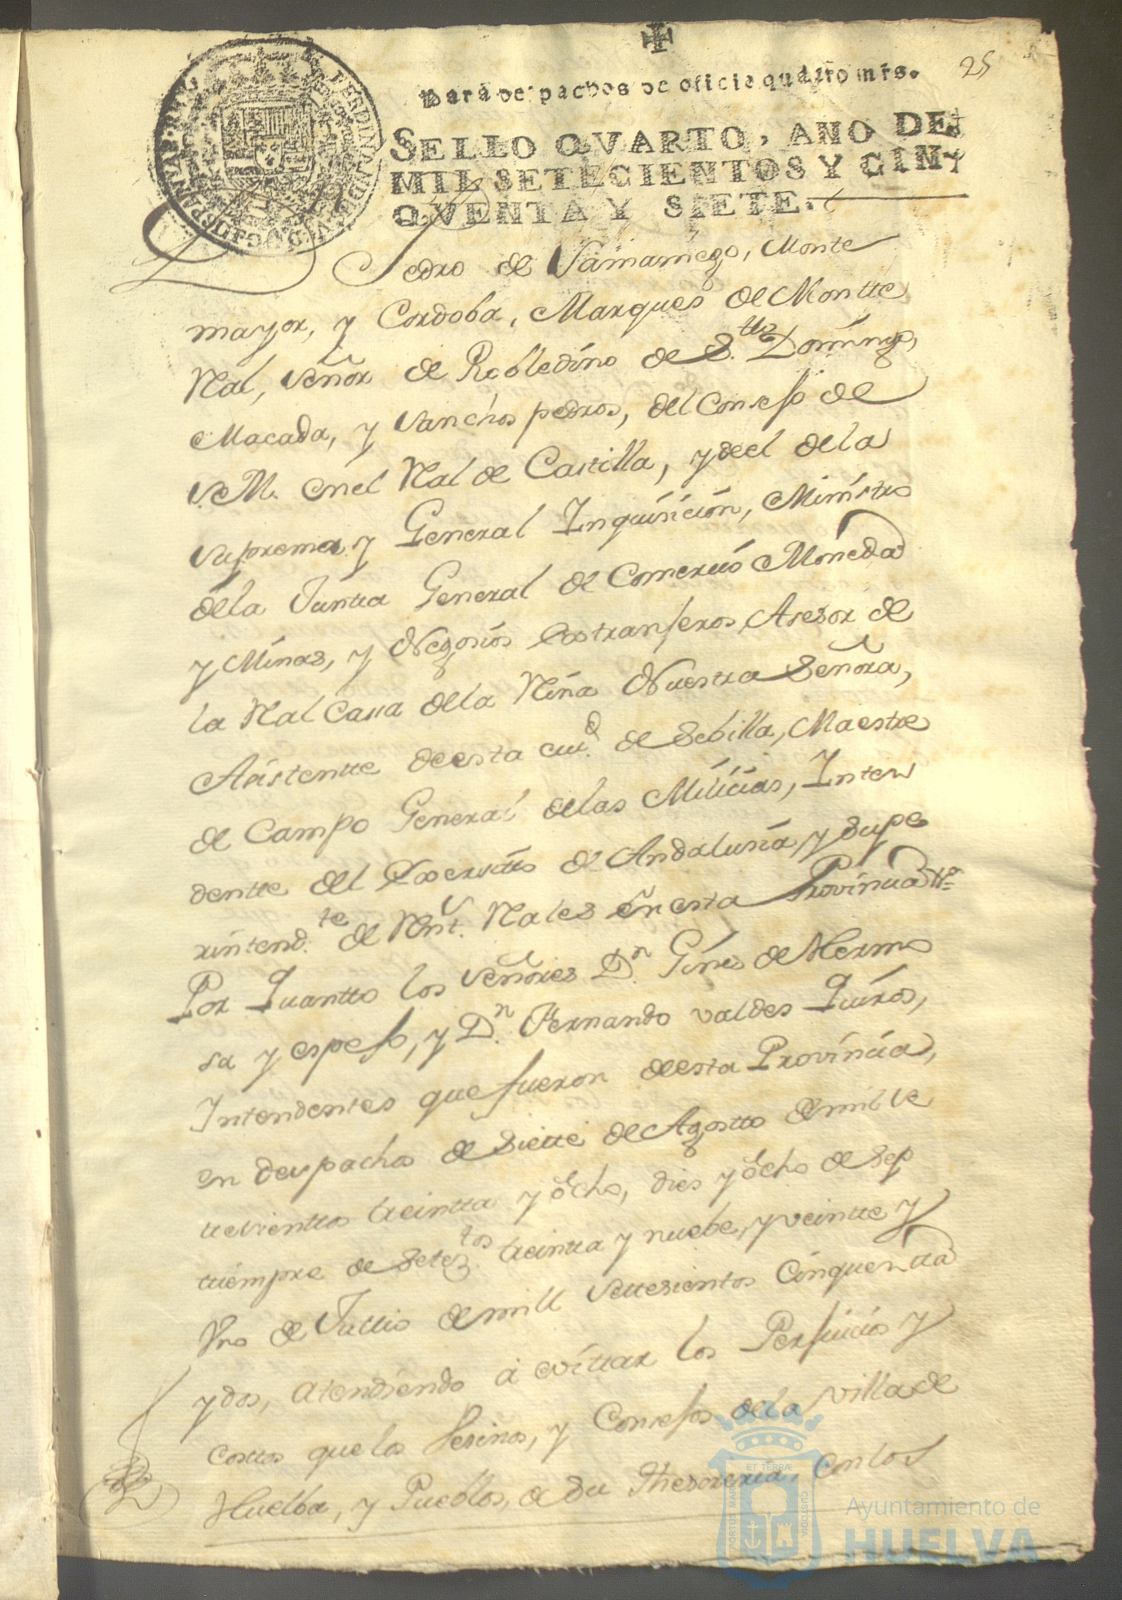 25
Para despachos de oficio quatro mrs.
SELLO QVARTO, AÑO DE
MIL SETECIENTOS Y CIN-
QVENTA Y SIETE.
Pedro de Samaniego, Monte
mayor, y Cordoba, Marques de Montte
Ral, Señor de Robledino de S.tto Domingo,
Macada, y Sanchos pedros, del Consejo de
S.M. en el Rl de Castilla, y de el de la
Suprema y General Inquisición, Ministro
de la Juntta General de Comercio Moneda
y Minas, y Negosios extranjeros Asesor de
la Rl Cassa de la Reina Nuestra Señora,
Asistentte de esta ciu.d de Sebilla, Maestre
de Campo General de las Milicias, Inten
dentte del Exercitto de Andalusia, y Supe
rintend.te de Rent.s Rales en esta Provincia
Por Quantto los Señores D.n Gines de Hermo
sa y espejo, y D.n Fernando valdes Quiros,
Intendentes que fueron de esta Provincia,
en despachos de Siette de Agostto de mill se
ttesienttos treintta y ocho, dies y ocho de Sep
ttiempre de Setez.tos treintta y nuebe, y veintte y
Vno de Jullio de mill settesientos Cinquentta
y dos, atendiendo a evittar los Perjuicios y
costtos que los Vesinos, y Consejos de la Villa de
Huelba, y Pueblos, de Su Thesoreria, con los
PORTUS MARIS
ET TERRÆ
CUSTODIA
Ayuntamiento de
HUELVA